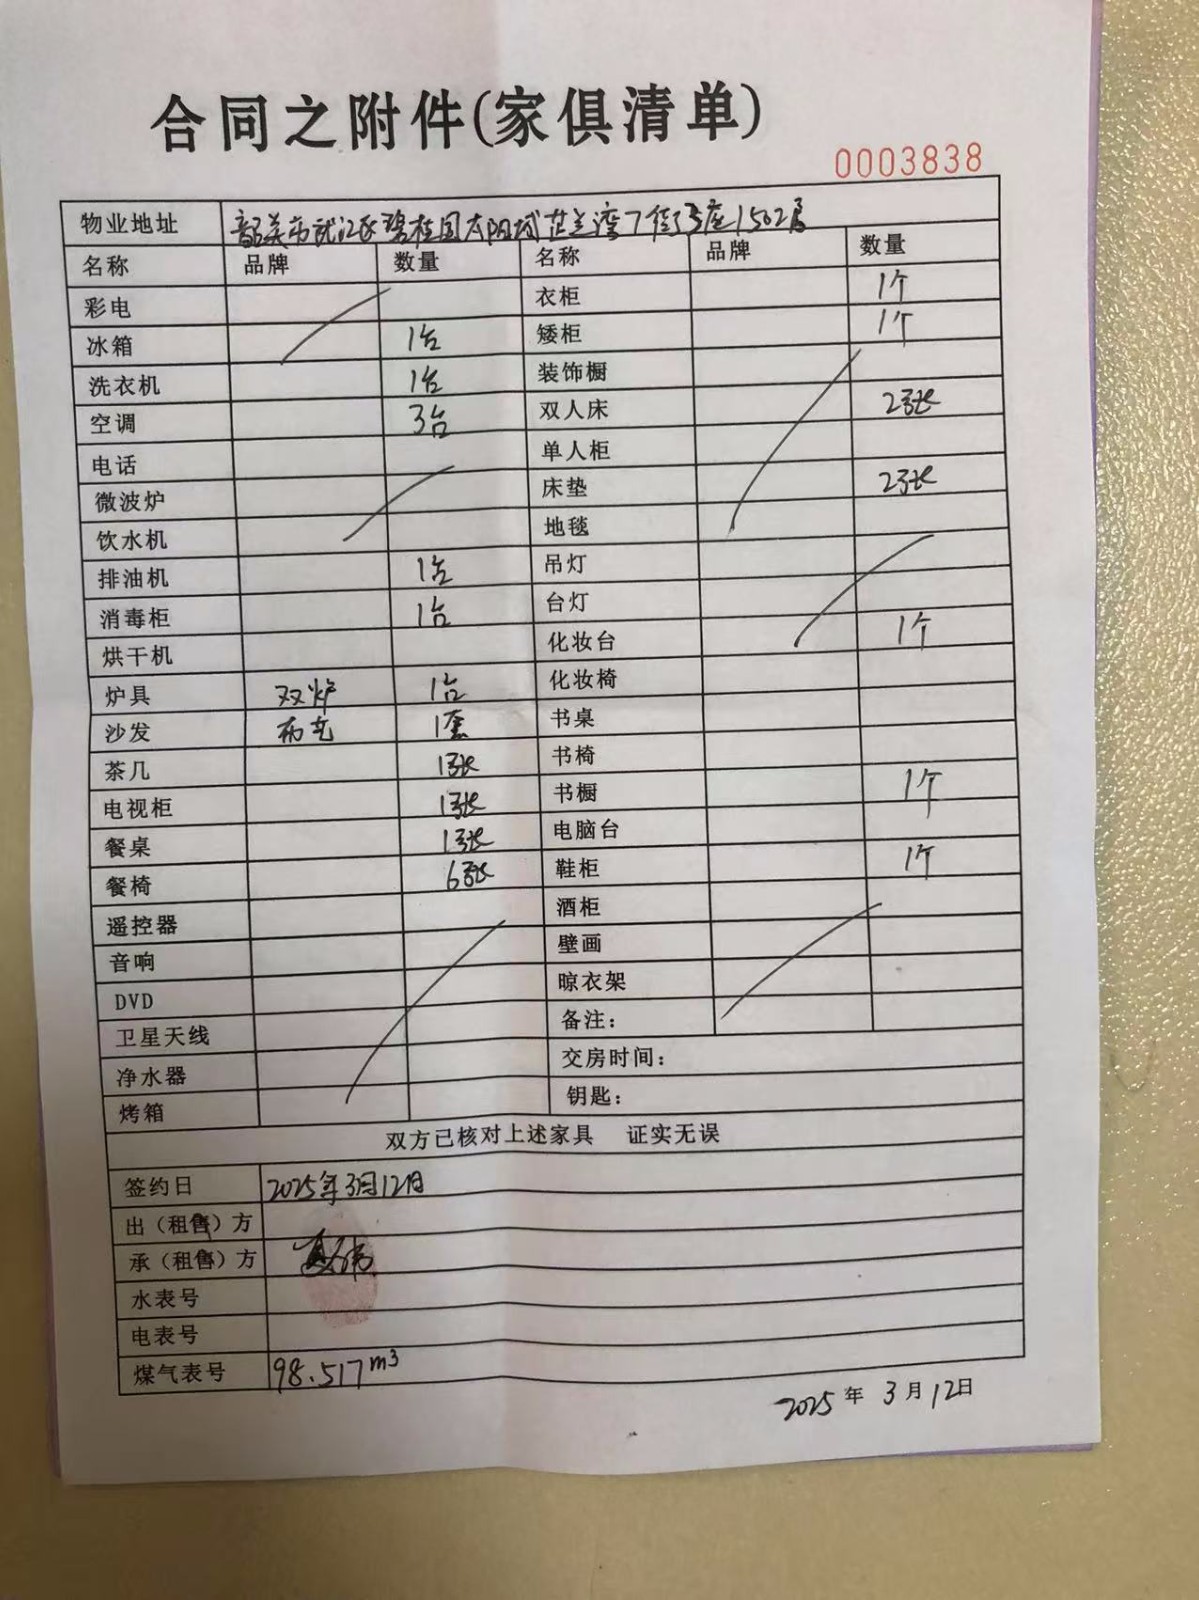 合同之附件(家俱清单)
0003838
物业地址 韶关市武江区碧桂园太阳城芷兰湾7街3座1502房
名称 品牌 数量 名称 品牌 数量
彩电 衣柜 1个
冰箱 1台 矮柜 1个
洗衣机 1台 装饰橱
空调 3台 双人床 2张
电话 单人柜
微波炉 床垫 2张
饮水机 地毯
排油机 1台 吊灯
消毒柜 1台 台灯
烘干机 化妆台 1个
炉具 双炉 1台 化妆椅
沙发 布艺 1套 书桌
茶几 1张 书椅
电视柜 1张 书橱 1个
餐桌 1张 电脑台
餐椅 6张 鞋柜 1个
遥控器 酒柜
音响 壁画
DVD 晾衣架
卫星天线 备注:
净水器 交房时间:
烤箱 钥匙:
双方已核对上述家具 证实无误
签约日 2025年3月12日
出(租售)方
承(租售)方
水表号
电表号
煤气表号 98.517m³
2025年3月12日